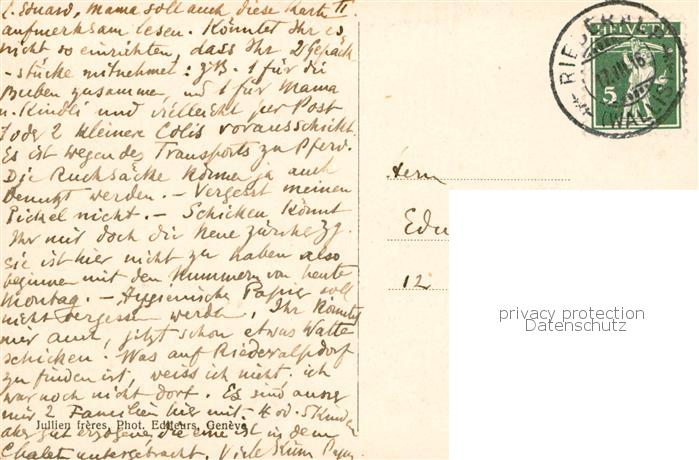 l. Eduard, Mama soll auch diese Karte II
aufmerksam lesen. Könntet Ihr es
nicht so einrichten, dass Ihr 2 Gepäck
-stücke mitnehmet: z.B. 1 für die
Buben zusammen, und 1 für Mama
u. Kindli und vielleicht per Post
1 oder 2 kleinere Colis vorausschickt.
Es ist wegen des Transports zu Pferd.
Die Rucksäcke können ja auch
benutzt werden. – Vergesst meinen
Pickel nicht. – Schicken könnt
Ihr mir doch die Neue Zürcher Zg.
sie ist hier nicht zu haben also
beginnen mit den Nummern von heute
Montag. – Hygienische Papier soll
nicht vergessen werden. Ihr könntet
mir auch, jetzt schon etwas Watte
schicken. Was auf Riederalpdorf
zu finden ist, weiss ich nicht, ich
war noch nicht dort. Es sind
mir 2 Familien hier mit 4 od. 5 Kindern
aber gut erzogene, die eine ist in dem
Chalet untergebracht. Viele Küsse Papa
Jullien frères, Phot. Editeurs, Genève
HELVETIA
5
RIEDERALP
(WALLIS)
Herrn
Edu
12
privacy protection
Datenschutz